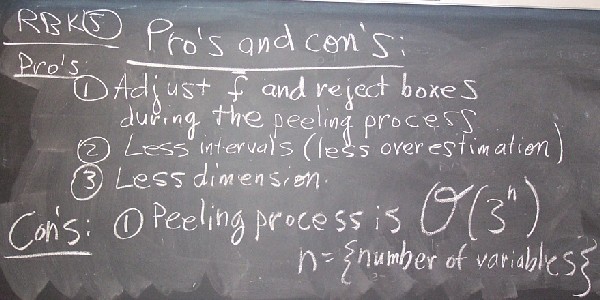 RBK⑤ Pro's and con's:
Pro's:
① Adjust f and reject boxes
during the peeling process
② Less intervals (less overestimation)
③ Less dimension.
Con's: ① Peeling process is O(3ⁿ)
n = {number of variables}